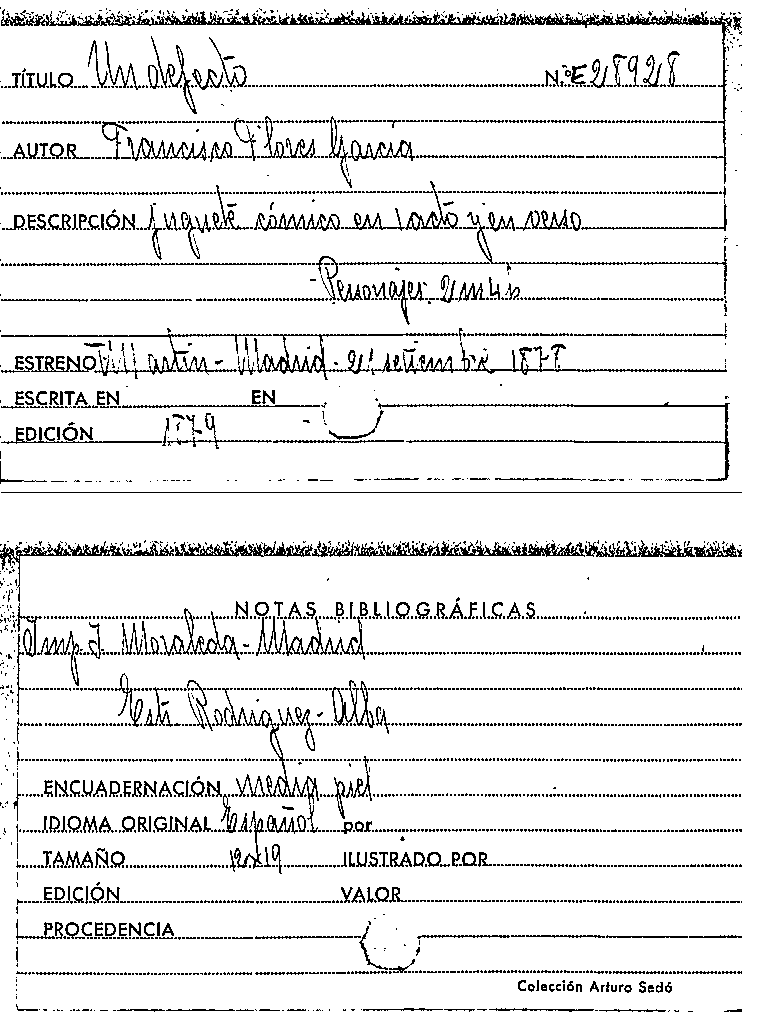 TÍTULO Un defecto Nº E28928
AUTOR Francisco Flores García
DESCRIPCIÓN juguete cómico en 1 acto y en verso
Personajes. 2m4h
ESTRENO Martin - Madrid - 21 setiembre 1878
ESCRITA EN EN
EDICIÓN 1879
NOTAS BIBLIOGRÁFICAS
Imp. J. Moraleda - Madrid
Rodriguez - Alba
ENCUADERNACIÓN media piel
IDIOMA ORIGINAL Español por
TAMAÑO 12x19 ILUSTRADO POR
EDICIÓN VALOR
PROCEDENCIA
Colección Arturo Sedó